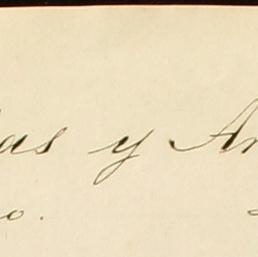 as y An
o.